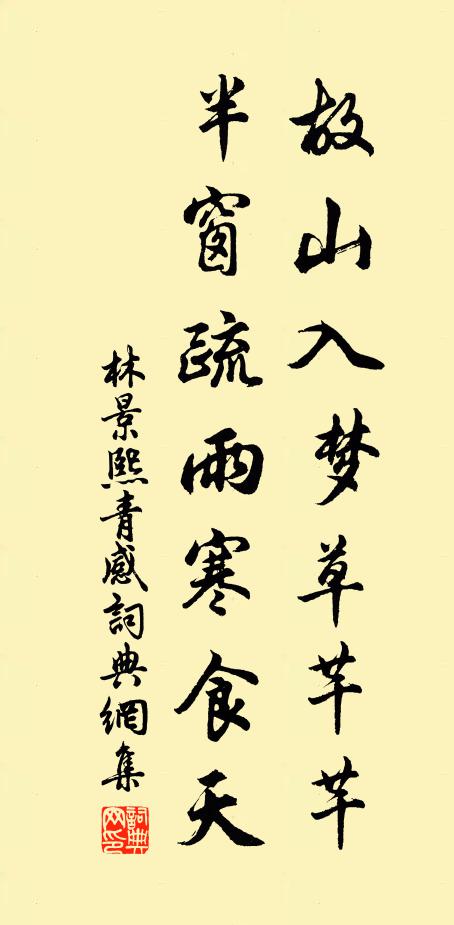 故山入梦草芊芊
半窗疏雨寒食天
林景熙青感詞典網集
詞典網印